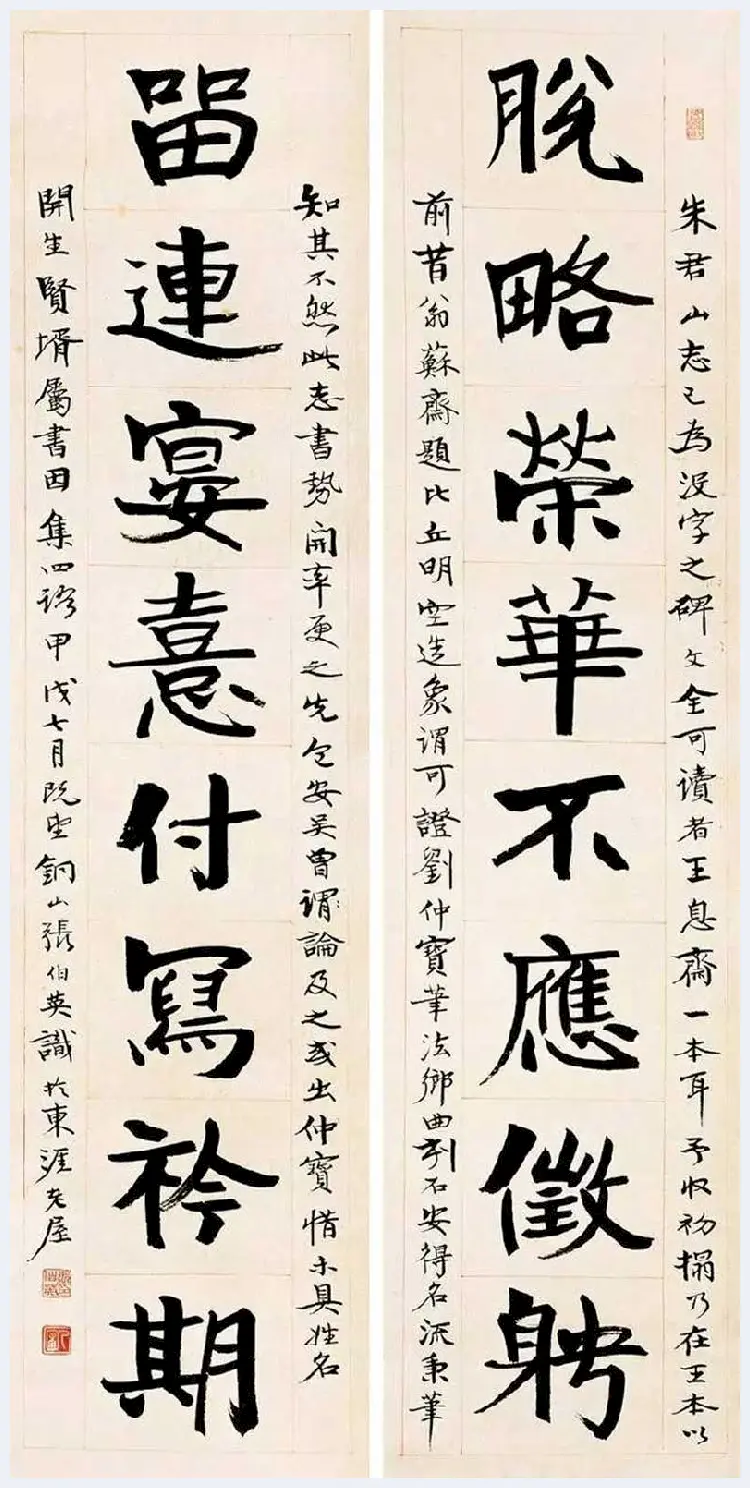 朱君山志已為没字之碑文全可讀者王息齋一本耳予收初搨乃在王本以
脫略榮華不應徵聘
前昔翁蘇齋題比丘明空造象謂可證劉仲寶筆法鄉曲刻石安得名流秉筆
知其不然此志書勢開率更之先包安吳曾謂論及之或出仲寶惜不具姓名
留連宴憙付寫衿期
開生賢壻屬書因集四語甲戌七月既望銅山張伯英識於東涯老屋